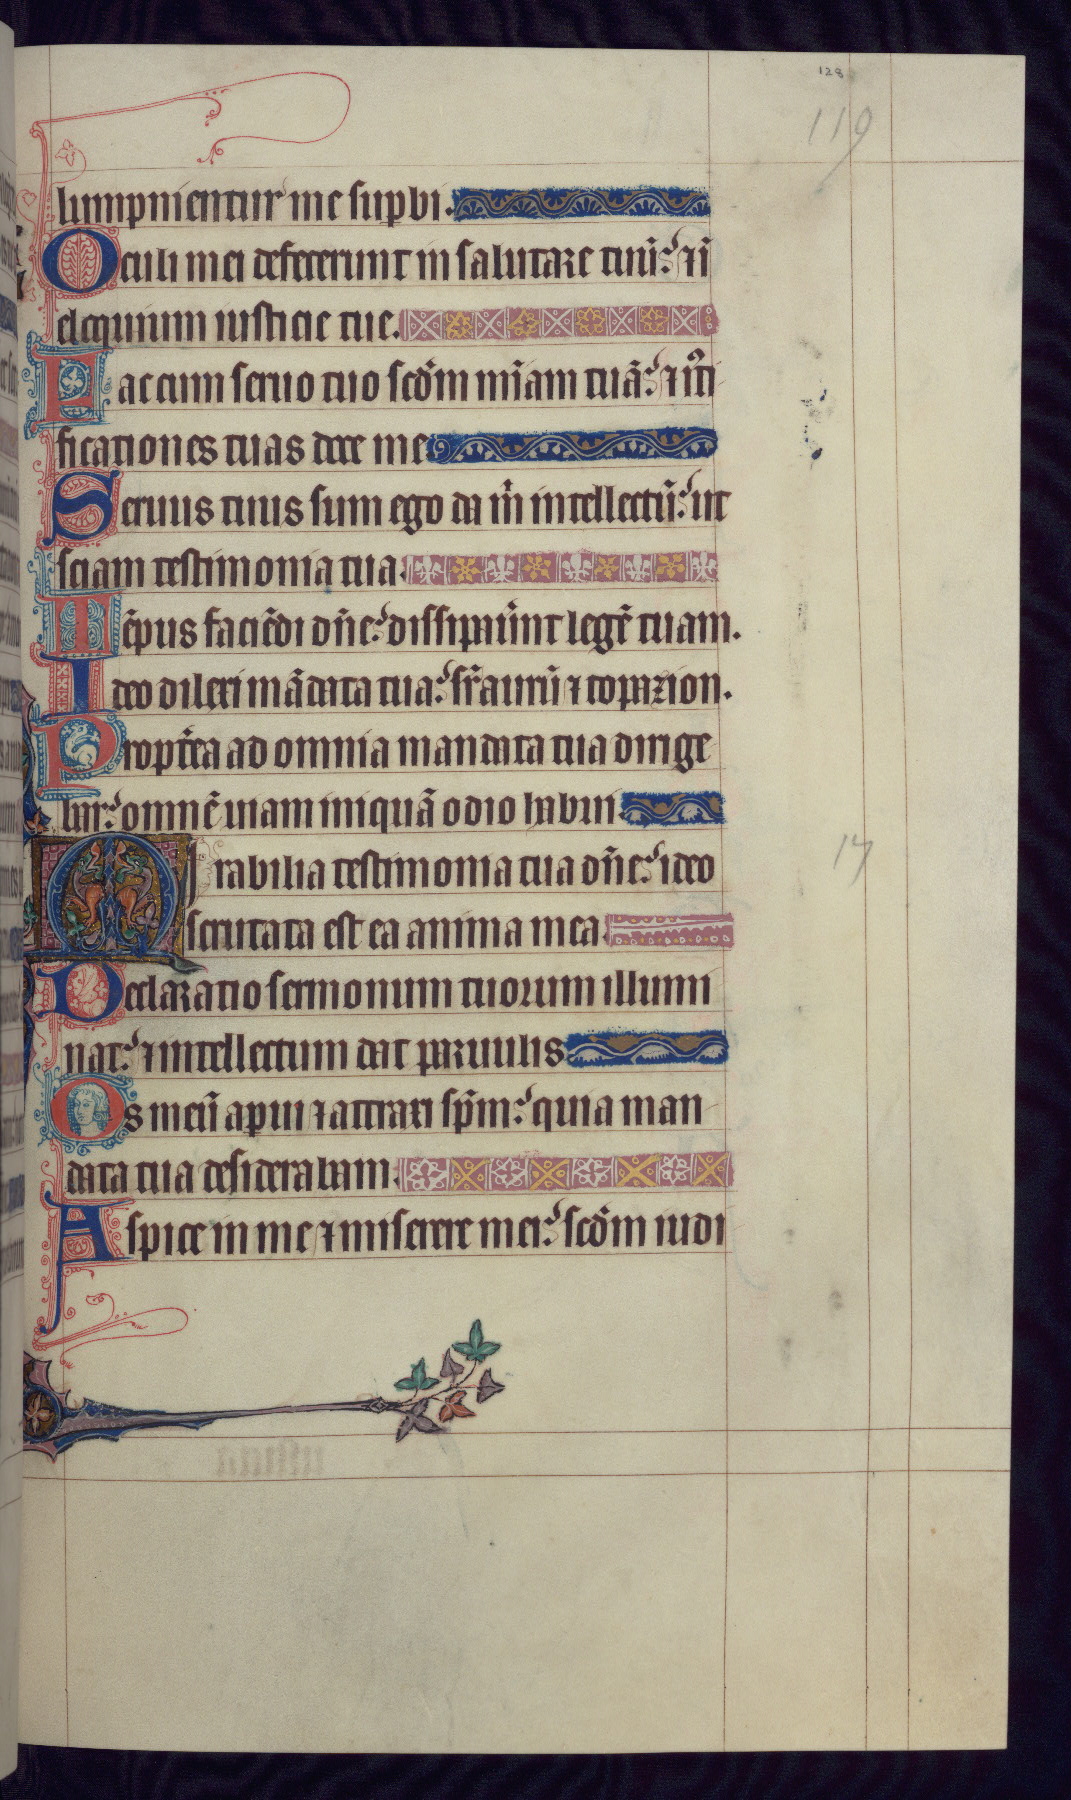 128
119
lumpnientur me supbi.
Oculi mei defecerunt in salutare tuū: ⁊ ī
eloquium iusticie tue.
Fac cum seruo tuo scđm mīam tuā: ⁊ iusti
ficationes tuas doce me
Seruus tuus sum ego da m̄ intellectū: ut
sciam testimonia tua.
Tēpus faciēdi dn̄e: dissipauˀnt legē tuam.
Ideo dilexi mādata tua: sr̄ aurū ⁊ topazion.
Propt̄ea ad omnia mandata tua dirige
bar: omnē uiam iniquā odio habui.
Mirabilia testimonia tua dn̄e: ideo
scrutata est ea anima mea.
Declaratio sermonum tuorum illumi
nat: ⁊ intellectum dat paruulis
Os meū apui ⁊ attraxi sp̄m: quia man
data tua desiderabam.
Aspice in me ⁊ miserere mei: scđm iudi
17